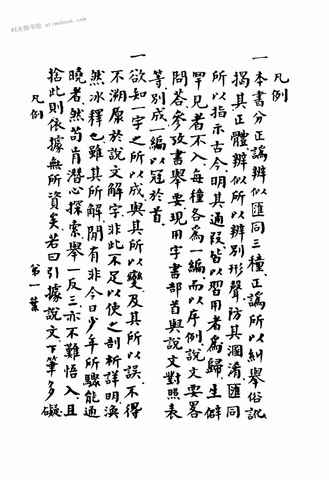 凡例
一 本書分正譌辨似匯同三種正譌所以糾舉俗訛
揭其正體辨似所以辨別形聲防其溷淆匯同
所以指示古今明其通叚皆以習用者爲歸生僻
罕見者不入每種各爲一編而以序例說文要畧
問答參攷書舉要現用字書部首與說文對照表
等別成一編以冠於首
一 欲知一字之所以成與其所以變及其所以誤不得
不溯原於說文解字非此不足以使之剖析詳明渙
然冰釋也雖其所解間有非今日少年所驟能通
曉者然苟肯潛心探索舉一反三亦不難悟入且
捨此則依據無所資矣若曰引據說文下筆多礙
凡例
第一葉